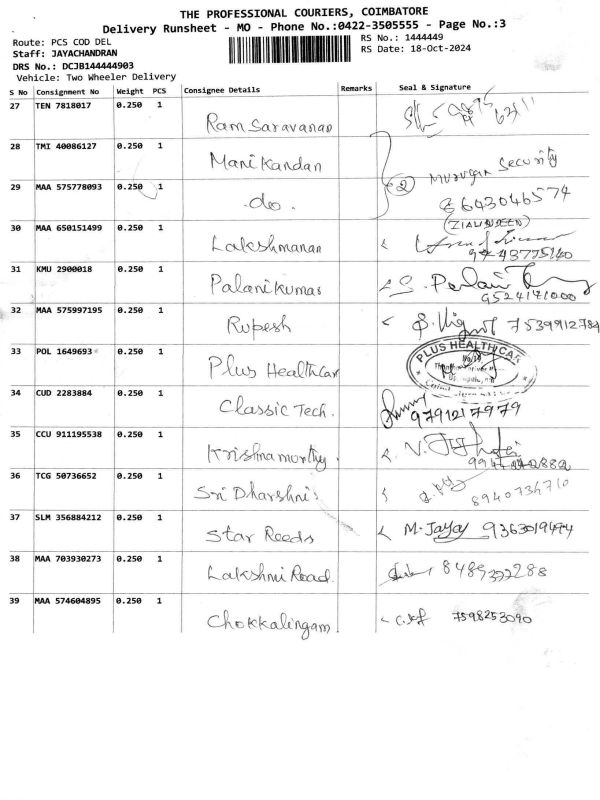 THE PROFESSIONAL COURIERS, COIMBATORE
Delivery Runsheet - MO - Phone No.:0422-3505555 - Page No.:3
Route: PCS COD DEL
RS No.: 1444449
Staff: JAYACHANDRAN
RS Date: 18-Oct-2024
DRS No.: DCJB144444903
Vehicle: Two Wheeler Delivery
S No Consignment No Weight PCS Consignee Details Remarks Seal & Signature
27 TEN 7818017 0.250 1 Ram Saravanan
28 TMI 40086127 0.250 1 Manikandan
29 MAA 575778093 0.250 1 do. 2 Murugan Security
8643046574
30 MAA 650151499 0.250 1 Lakshmanan (ZIAUDEEN)
31 KMU 2900018 0.250 1 Palanikumar
9524171000
32 MAA 575997195 0.250 1 Rupesh 7539912784
33 POL 1649693 0.250 1 Plus Healthcar PLUS HEALTHCAR
34 CUD 2283884 0.250 1 Classic Tech. 9791217979
35 CCU 911195538 0.250 1 Krishnamurthy
36 TCG 50736652 0.250 1 Sri Dharshnis
8940734710
37 SLM 356884212 0.250 1 Star Reeds M. Jayaj 9363019494
38 MAA 703930273 0.250 1 Lakshmi Road. 8489322288
39 MAA 574604895 0.250 1 Chokkalingam 7598253090